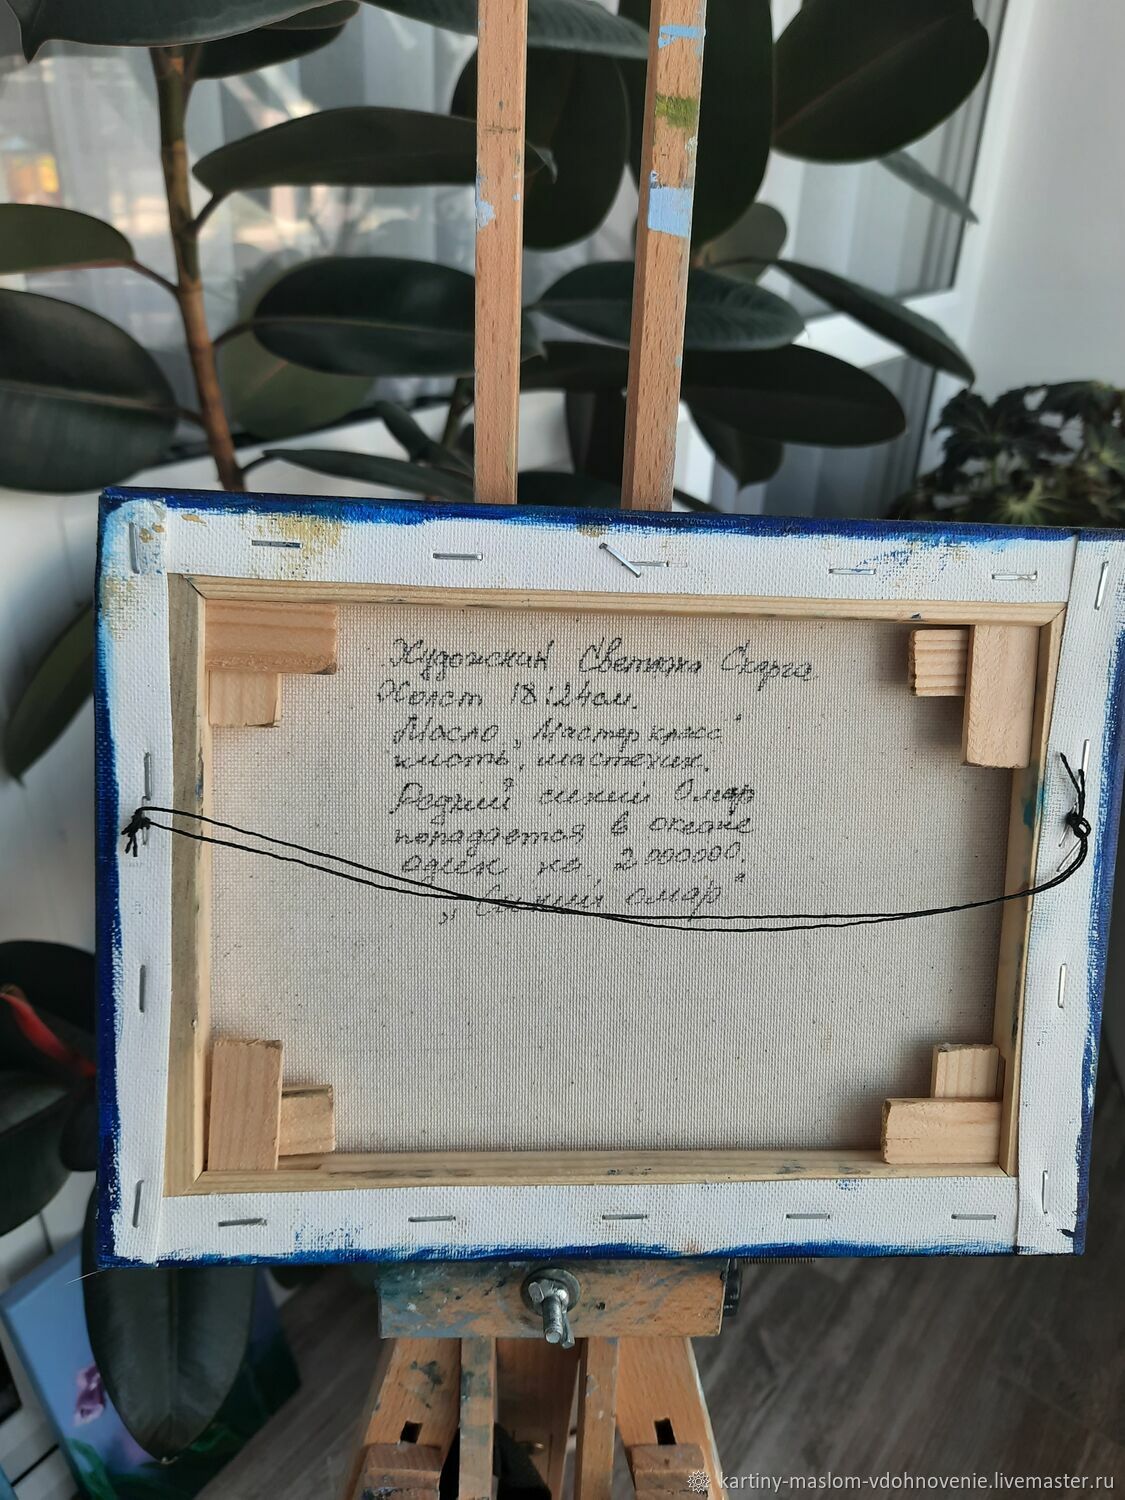 Художник Светлана Скарга
Холст 18:24см.
Масло, Мастер класс
кисть, мастехин.
Редкий синий Омар
попадается в океане
один на 2000000.
„Синий омар"
kartiny-maslom-vdohnovenie.livemaster.ru